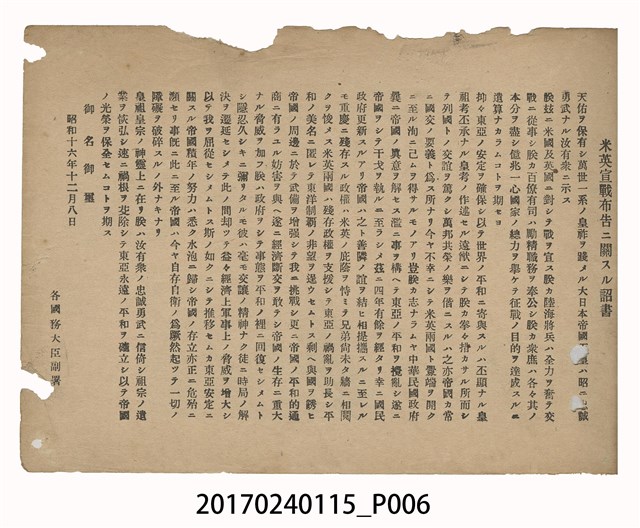 米英宣戰布告ニ關スル詔書
天佑ヲ保有シ萬世一系ノ皇祚ヲ踐メル大日本帝國皇ハ昭ニ忠誠
勇武ナル汝有衆ニ示ス
朕玆ニ米國及英國ニ對シテ戰ヲ宣ス朕カ陸海將兵ハ全力ヲ奮テ交
戰ニ從事シ朕カ百僚有司ハ勵精職務ヲ奉公シ朕カ衆庶ハ各々其ノ
本分ヲ盡シ億兆一心國家ノ總力ヲ擧ケテ征戰ノ目的ヲ達成スルニ
遺算ナカラムコトヲ期セヨ
抑々東亞ノ安定ヲ確保シ以テ世界ノ平和ニ寄與スルハ丕顯ナル皇
祖考丕承ナル皇考ノ作述セル遠猷ニシテ朕カ拳々措カサル所而シ
テ列國トノ交誼ヲ篤クシ萬邦共榮ノ樂ヲ偕ニスルハ之亦帝國カ常
ニ國交ノ要義ト爲ス所ナリ今ヤ不幸ニシテ米英兩國ト釁端ヲ開ク
ニ至ル洵ニ已ムヲ得サルモノアリ豈朕カ志ナラムヤ中華民國政府
曩ニ帝國ノ眞意ヲ解セス濫ニ事ヲ構ヘテ東亞ノ平和ヲ攪亂シ遂ニ
帝國ヲシテ干戈ヲ執ルニ至ラシメ玆ニ四年有餘ヲ經タリ幸ニ國民
政府更新スルアリ帝國ハ之ト善隣ノ誼ヲ結ヒ相提攜スルニ至レル
モ重慶ニ殘存スル政權ハ米英ノ庇蔭ヲ恃ミテ兄弟尚未タ牆ニ相鬩
クヲ悛メス米英兩國ハ殘存政權ヲ支援シテ東亞ノ禍亂ヲ助長シ平
和ノ美名ニ匿レテ東洋制覇ノ非望ヲ逞ウセムトス剩ヘ與國ヲ誘ヒ
帝國ノ周邊ニ於テ武備ヲ增强シテ我ニ挑戰シ更ニ帝國ノ平和的通
商ニ有ラユル妨害ヲ與ヘ遂ニ經濟斷交ヲ敢テシ帝國ノ生存ニ重大
ナル脅威ヲ加フ朕ハ政府ヲシテ事態ヲ平和ノ裡ニ回復セシメムト
シ隱忍久シキニ彌リタルモ彼ハ毫モ交讓ノ精神ナク徒ニ時局ノ解
決ヲ遷延セシメテ此ノ間却ツテ益々經濟上軍事上ノ脅威ヲ增大シ
以テ我ヲ屈從セシメムトス斯ノ如クニシテ推移セムカ東亞安定ニ
關スル帝國積年ノ努力ハ悉ク水泡ニ歸シ帝國ノ存立亦正ニ危殆ニ
瀕セリ事旣ニ此ニ至ル帝國ハ今ヤ自存自衞ノ爲蹶然起ツテ一切ノ
障礙ヲ破碎スルノ外ナキナリ
皇祖皇宗ノ神靈上ニ在リ朕ハ汝有衆ノ忠誠勇武ニ信倚シ祖宗ノ遺
業ヲ恢弘シ速ニ禍根ヲ芟除シテ東亞永遠ノ平和ヲ確立シ以テ帝國
ノ光榮ヲ保全セムコトヲ期ス
御名御璽
昭和十六年十二月八日
各國務大臣副署
20170240115_P006